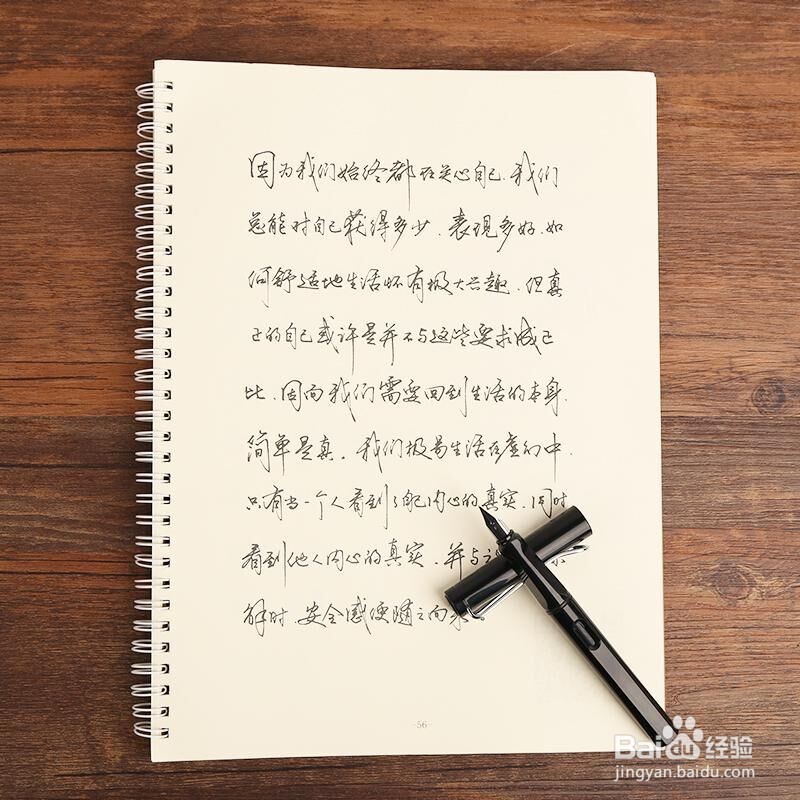 因为我们始终都在关心自己.我们
总能对自己获得多少.表现多好.如
何舒适地生活怀有极大兴趣.但真
正的自己或许是并不与这些要求成正
比.因而我们需要回到生活的本身.
简单是真.我们极易生活在虚幻中.
只有当一个人看到了自己内心的真实.同时
看到他人内心的真实.并与之
解时.安全感便随之而来。
-56-
Baidu经验
jingyan.baidu.com